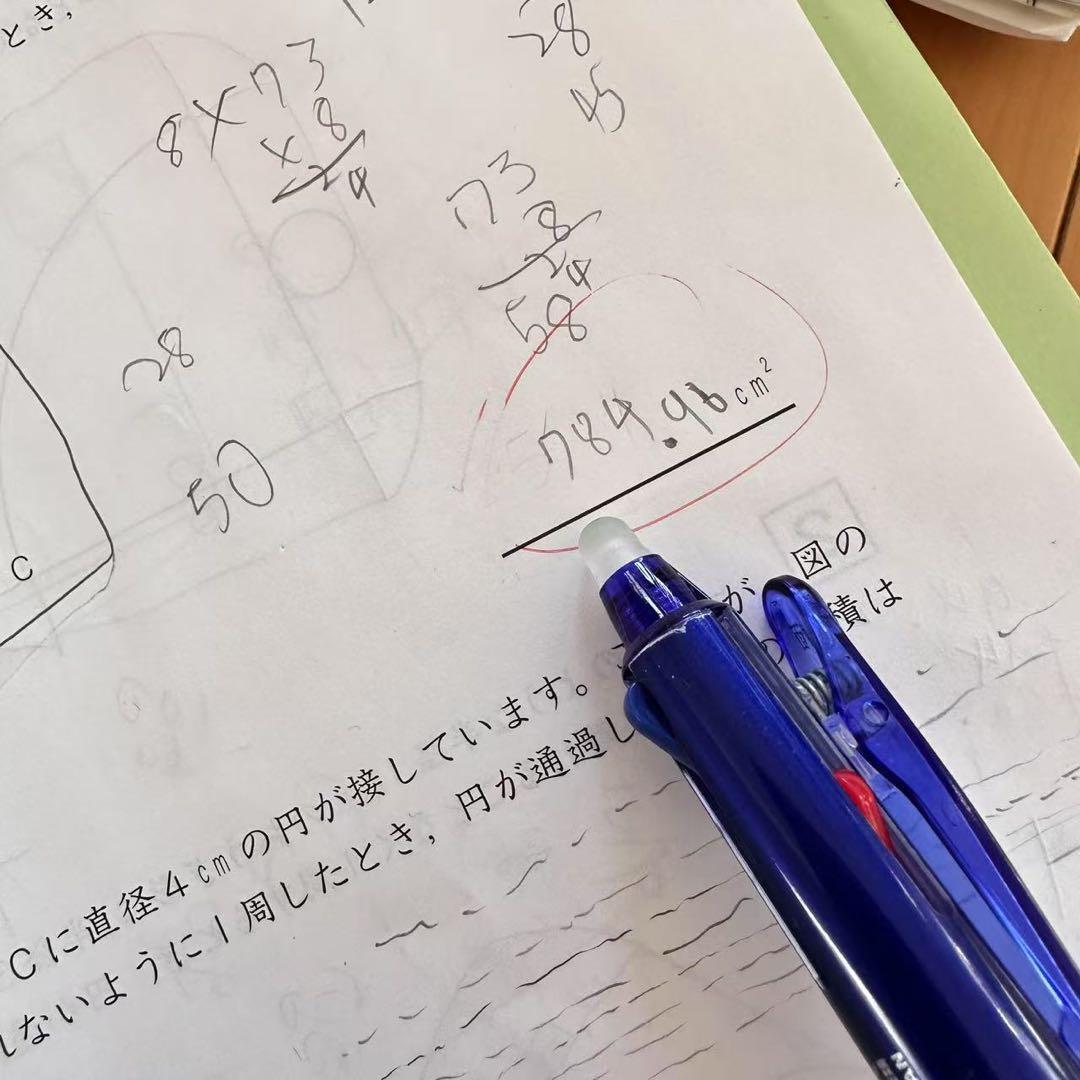 とき,
28
45
8×73
×8
24
73
8
24
584
28
50
784.96cm²
C
図の
Cに直径4cmの円が接しています。
が
積は
ないように1周したとき,円が通過し